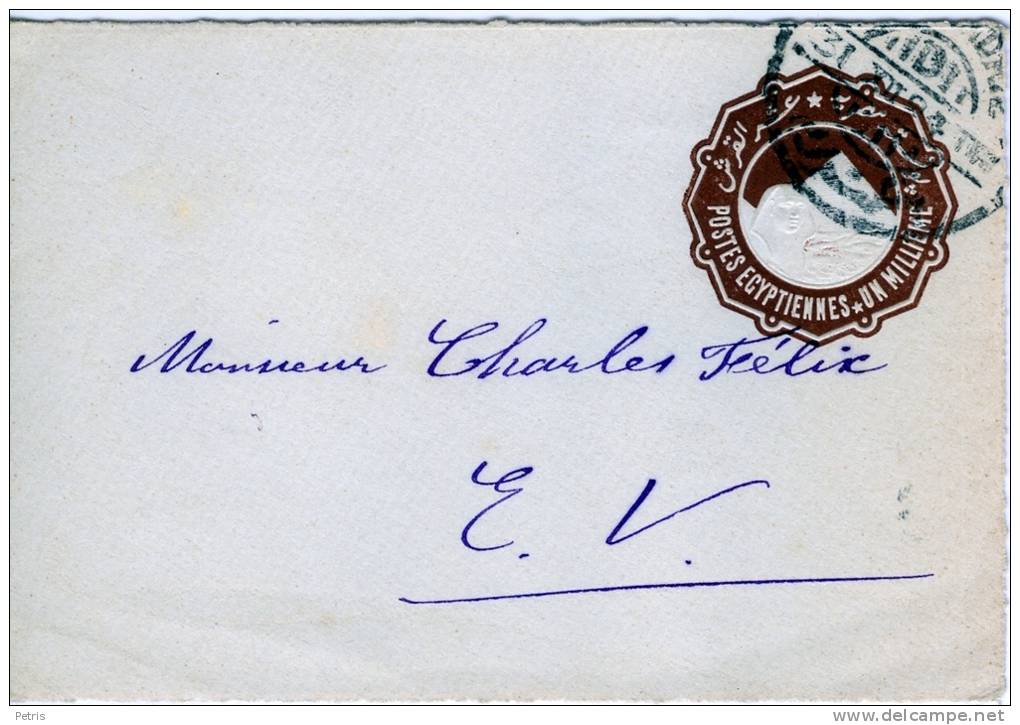 عشر القرش
POSTES EGYPTIENNES ★ UN MILLIEME
Monsieur Charles Félix
E. V.
Petris
www.delcampe.net